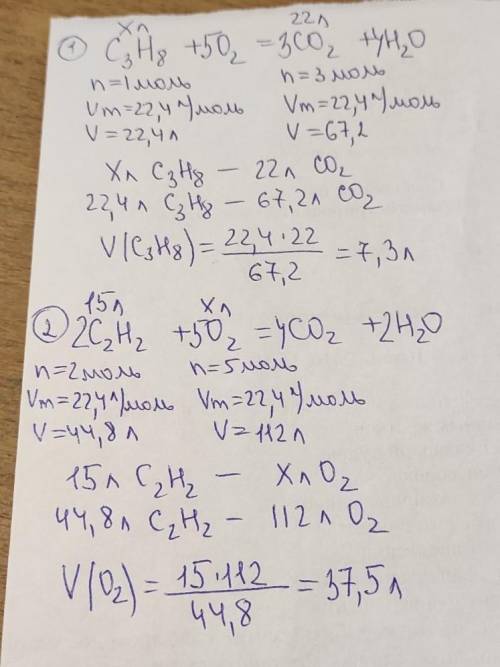 xл 22л
① C₃H₈ + 5O₂ = 3CO₂ + 4H₂O
n=1моль n=3моль
Vm=22,4 л/моль Vm=22,4 л/моль
V=22,4л V=67,2
Xл C₃H₈ — 22л CO₂
22,4л C₃H₈ — 67,2л CO₂
V(C₃H₈) = 22,4·22 / 67,2 = 7,3л
15л Xл
② 2C₂H₂ + 5O₂ = 4CO₂ + 2H₂O
n=2моль n=5моль
Vm=22,4 л/моль Vm=22,4 л/моль
V=44,8л V=112л
15л C₂H₂ — XлO₂
44,8л C₂H₂ — 112л O₂
V(O₂) = 15·112 / 44,8 = 37,5л